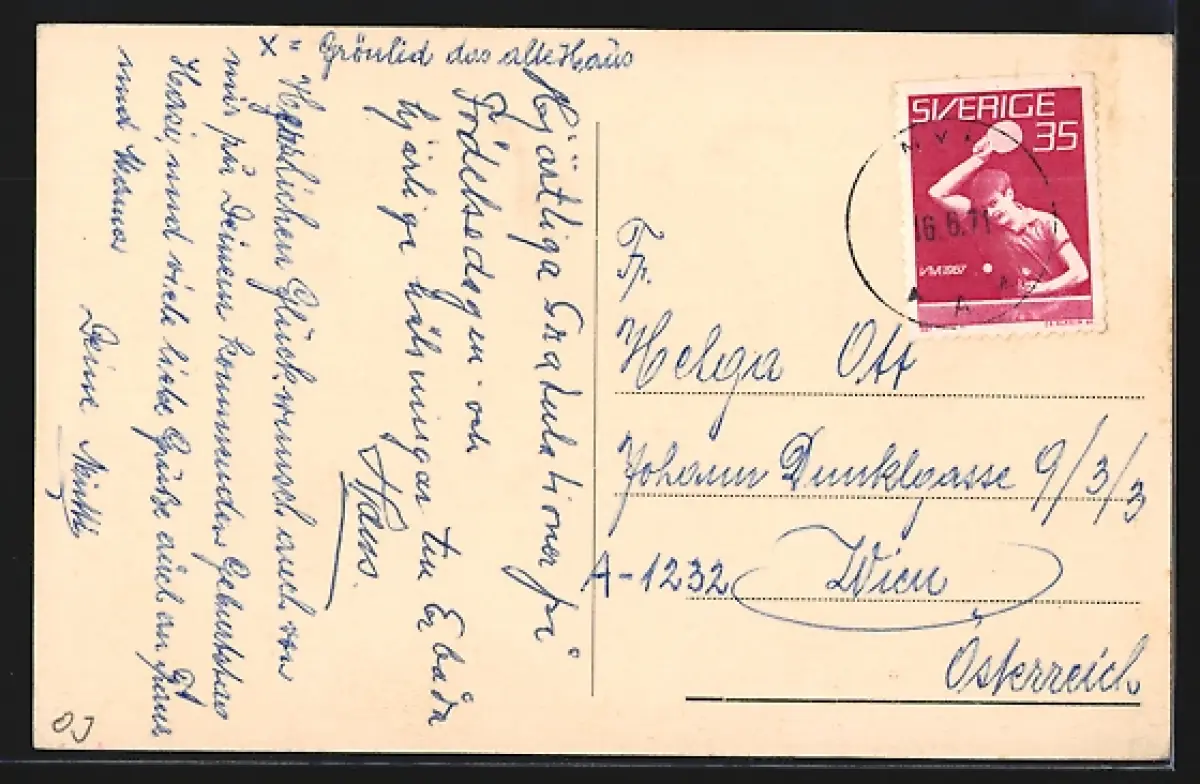 x = Grönlid das alte Haus
Hjärtliga Gratulationer på
Födelsedagen och
hjärliga hälsningar till Er båda
Hans.
Herzlichen Glückwunsch auch von
mir zu Deinem kommenden Geburtstag
Hasi, und viele liebe Grüße auch an Franz
und Mama
Deine Mutti
SVERIGE
35
16.6.71
VM 1967
Fr.
Helga Ott
Johann Dunklgasse 9/3/3
A-1232 Wien
Österreich
OJ